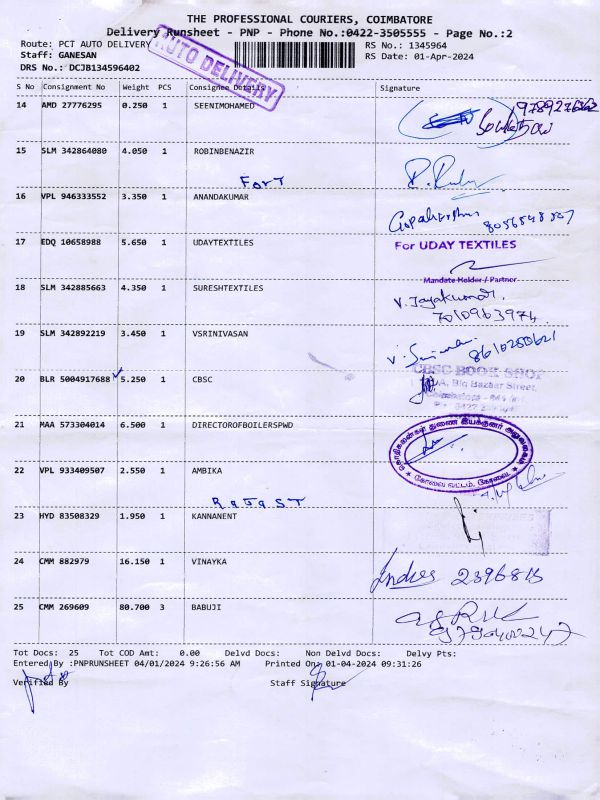 THE PROFESSIONAL COURIERS, COIMBATORE
Delivery Runsheet - PNP - Phone No.:0422-3505555 - Page No.:2
Route: PCT AUTO DELIVERY RS No.: 1345964
Staff: GANESAN RS Date: 01-Apr-2024
DRS No.: DCJB134596402
AUTO DELIVERY
S No Consignment No Weight PCS Consignee Details Signature
14 AMD 27776295 0.250 1 SEENIMOHAMED
15 SLM 342864080 4.050 1 ROBINBENAZIR
FORT
16 VPL 946333552 3.350 1 ANANDAKUMAR
17 EDQ 10658988 5.650 1 UDAYTEXTILES
For UDAY TEXTILES
Mandate Holder / Partner
18 SLM 342885663 4.350 1 SURESHTEXTILES
V. Jayakumar,
7010963974
19 SLM 342892219 3.450 1 VSRINIVASAN
8610250621
20 BLR 5004917688 5.250 1 CBSC
CBSC BOOK SHOP
Big Bazaar Street,
21 MAA 573304014 6.500 1 DIRECTOROFBOILERSPWD
22 VPL 933409507 2.550 1 AMBIKA
23 HYD 83508329 1.950 1 KANNANENT
24 CMM 882979 16.150 1 VINAYKA
25 CMM 269609 80.700 3 BABUJI
Tot Docs: 25 Tot COD Amt: 0.00 Delvd Docs: Non Delvd Docs: Delvy Pts:
Entered By :PNPRUNSHEET 04/01/2024 9:26:56 AM Printed On: 01-04-2024 09:31:26
Verified By Staff Signature